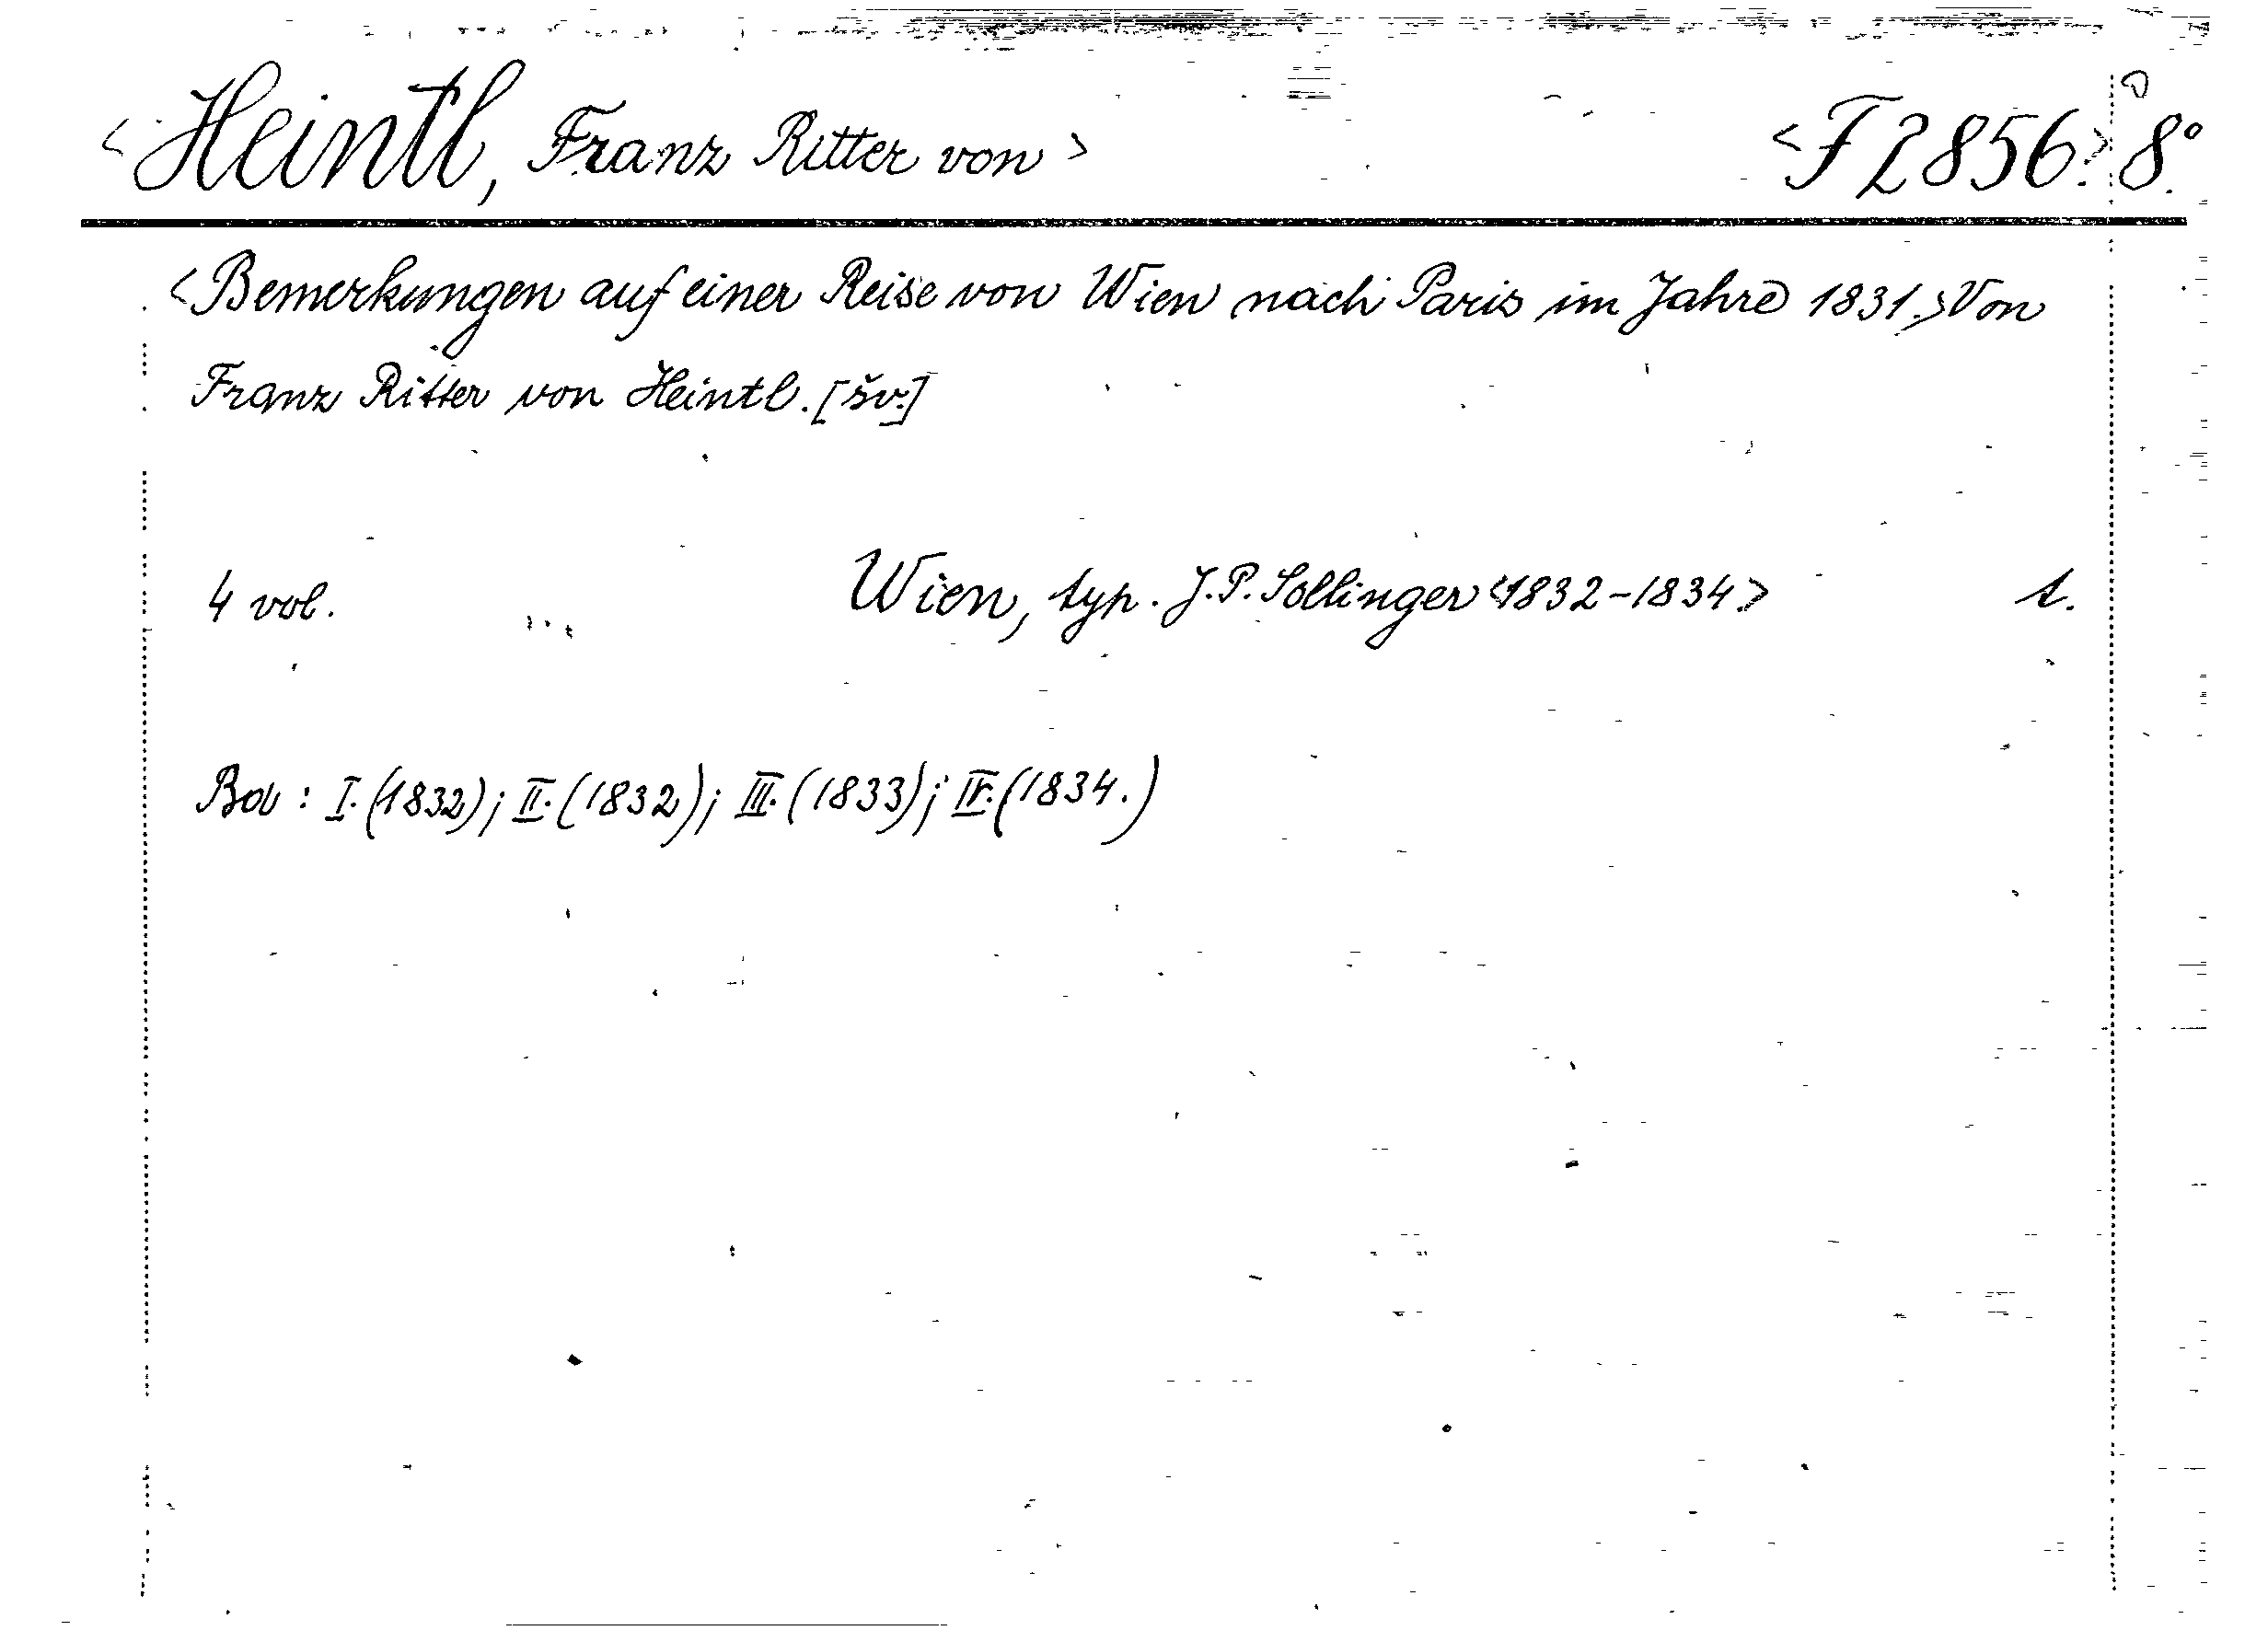 <Heintl, Franz Ritter von> <F 2856.> 8.°
<Bemerkungen auf einer Reise von Wien nach Paris im Jahre 1831.> Von
Franz Ritter von Heintl. [šv.]
4 vol. Wien, typ. J. P. Sollinger <1832-1834.> 1.
Bd : I. (1832); II. (1832); III. (1833); IV. (1834.)